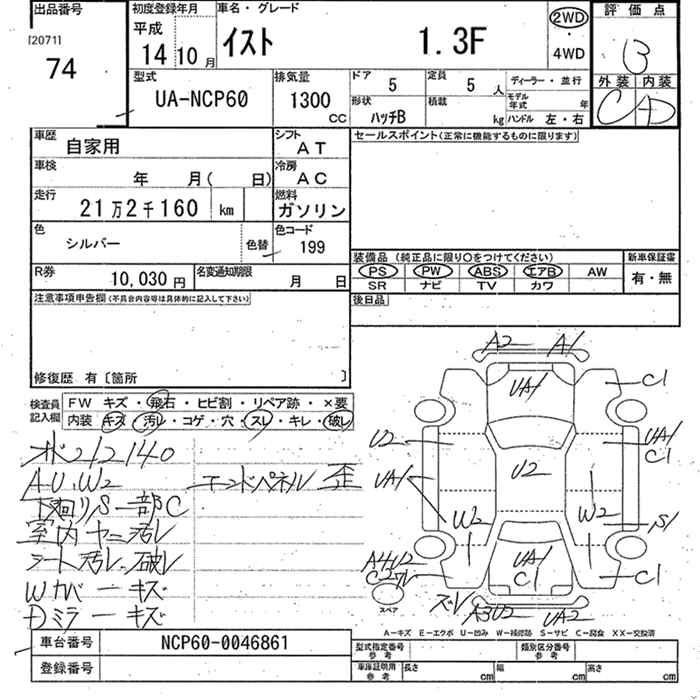 出品番号
[2071]
74
初度登録年月
平成
14 10 月
車名・グレード
イスト 1.3F
2WD
・
4WD
評価点
B
外装 内装
C D
型式
UA-NCP60
排気量
1300
CC
ドア
5
定員
5 人
形状
ハッチB
積載
kg
ディーラー・並行
モデル年式 年
ハンドル 左・右
車歴
自家用
シフト
AT
車検
年 月( 日)
冷房
AC
走行
21万2千160 km
燃料
ガソリン
色
シルバー
色替
色コード
199
R券
10,030 円
名変通知期限
月 日
セールスポイント(正常に機能するものに限ります)
装備品(純正品に限り○をつけてください)
PS PW ABS エアB AW
SR ナビ TV カワ
新車保証書
有・無
後日品
注意事項申告欄(不具合内容等は具体的に記入して下さい)
修復歴 有〔箇所 〕
検査員記入欄
FW キズ・飛石・ヒビ割・リペア跡・×要
内装 キズ・汚レ・コゲ・穴・スレ・キレ・破レ
212140
AU.W2
エンドパネル 歪
下廻りS一部C
室内ヤニ汚レ
シート汚レ.破レ
Wカバーキズ
Dミラーキズ
A2 A1
UA1
C1
U2
UA1
C1
UA1
U2
W2
W2
S1
A4U2
UA1
C1
C1
スペア
ズレ
A3U2
UA2
A-キズ E-エクボ U-凹み W-補修跡 S-サビ C-腐食 XX-交換済
車台番号
NCP60-0046861
登録番号
型式指定番号
参考
類別区分番号
参考
車庫証明用
参考
長さ cm
幅 cm
高さ cm